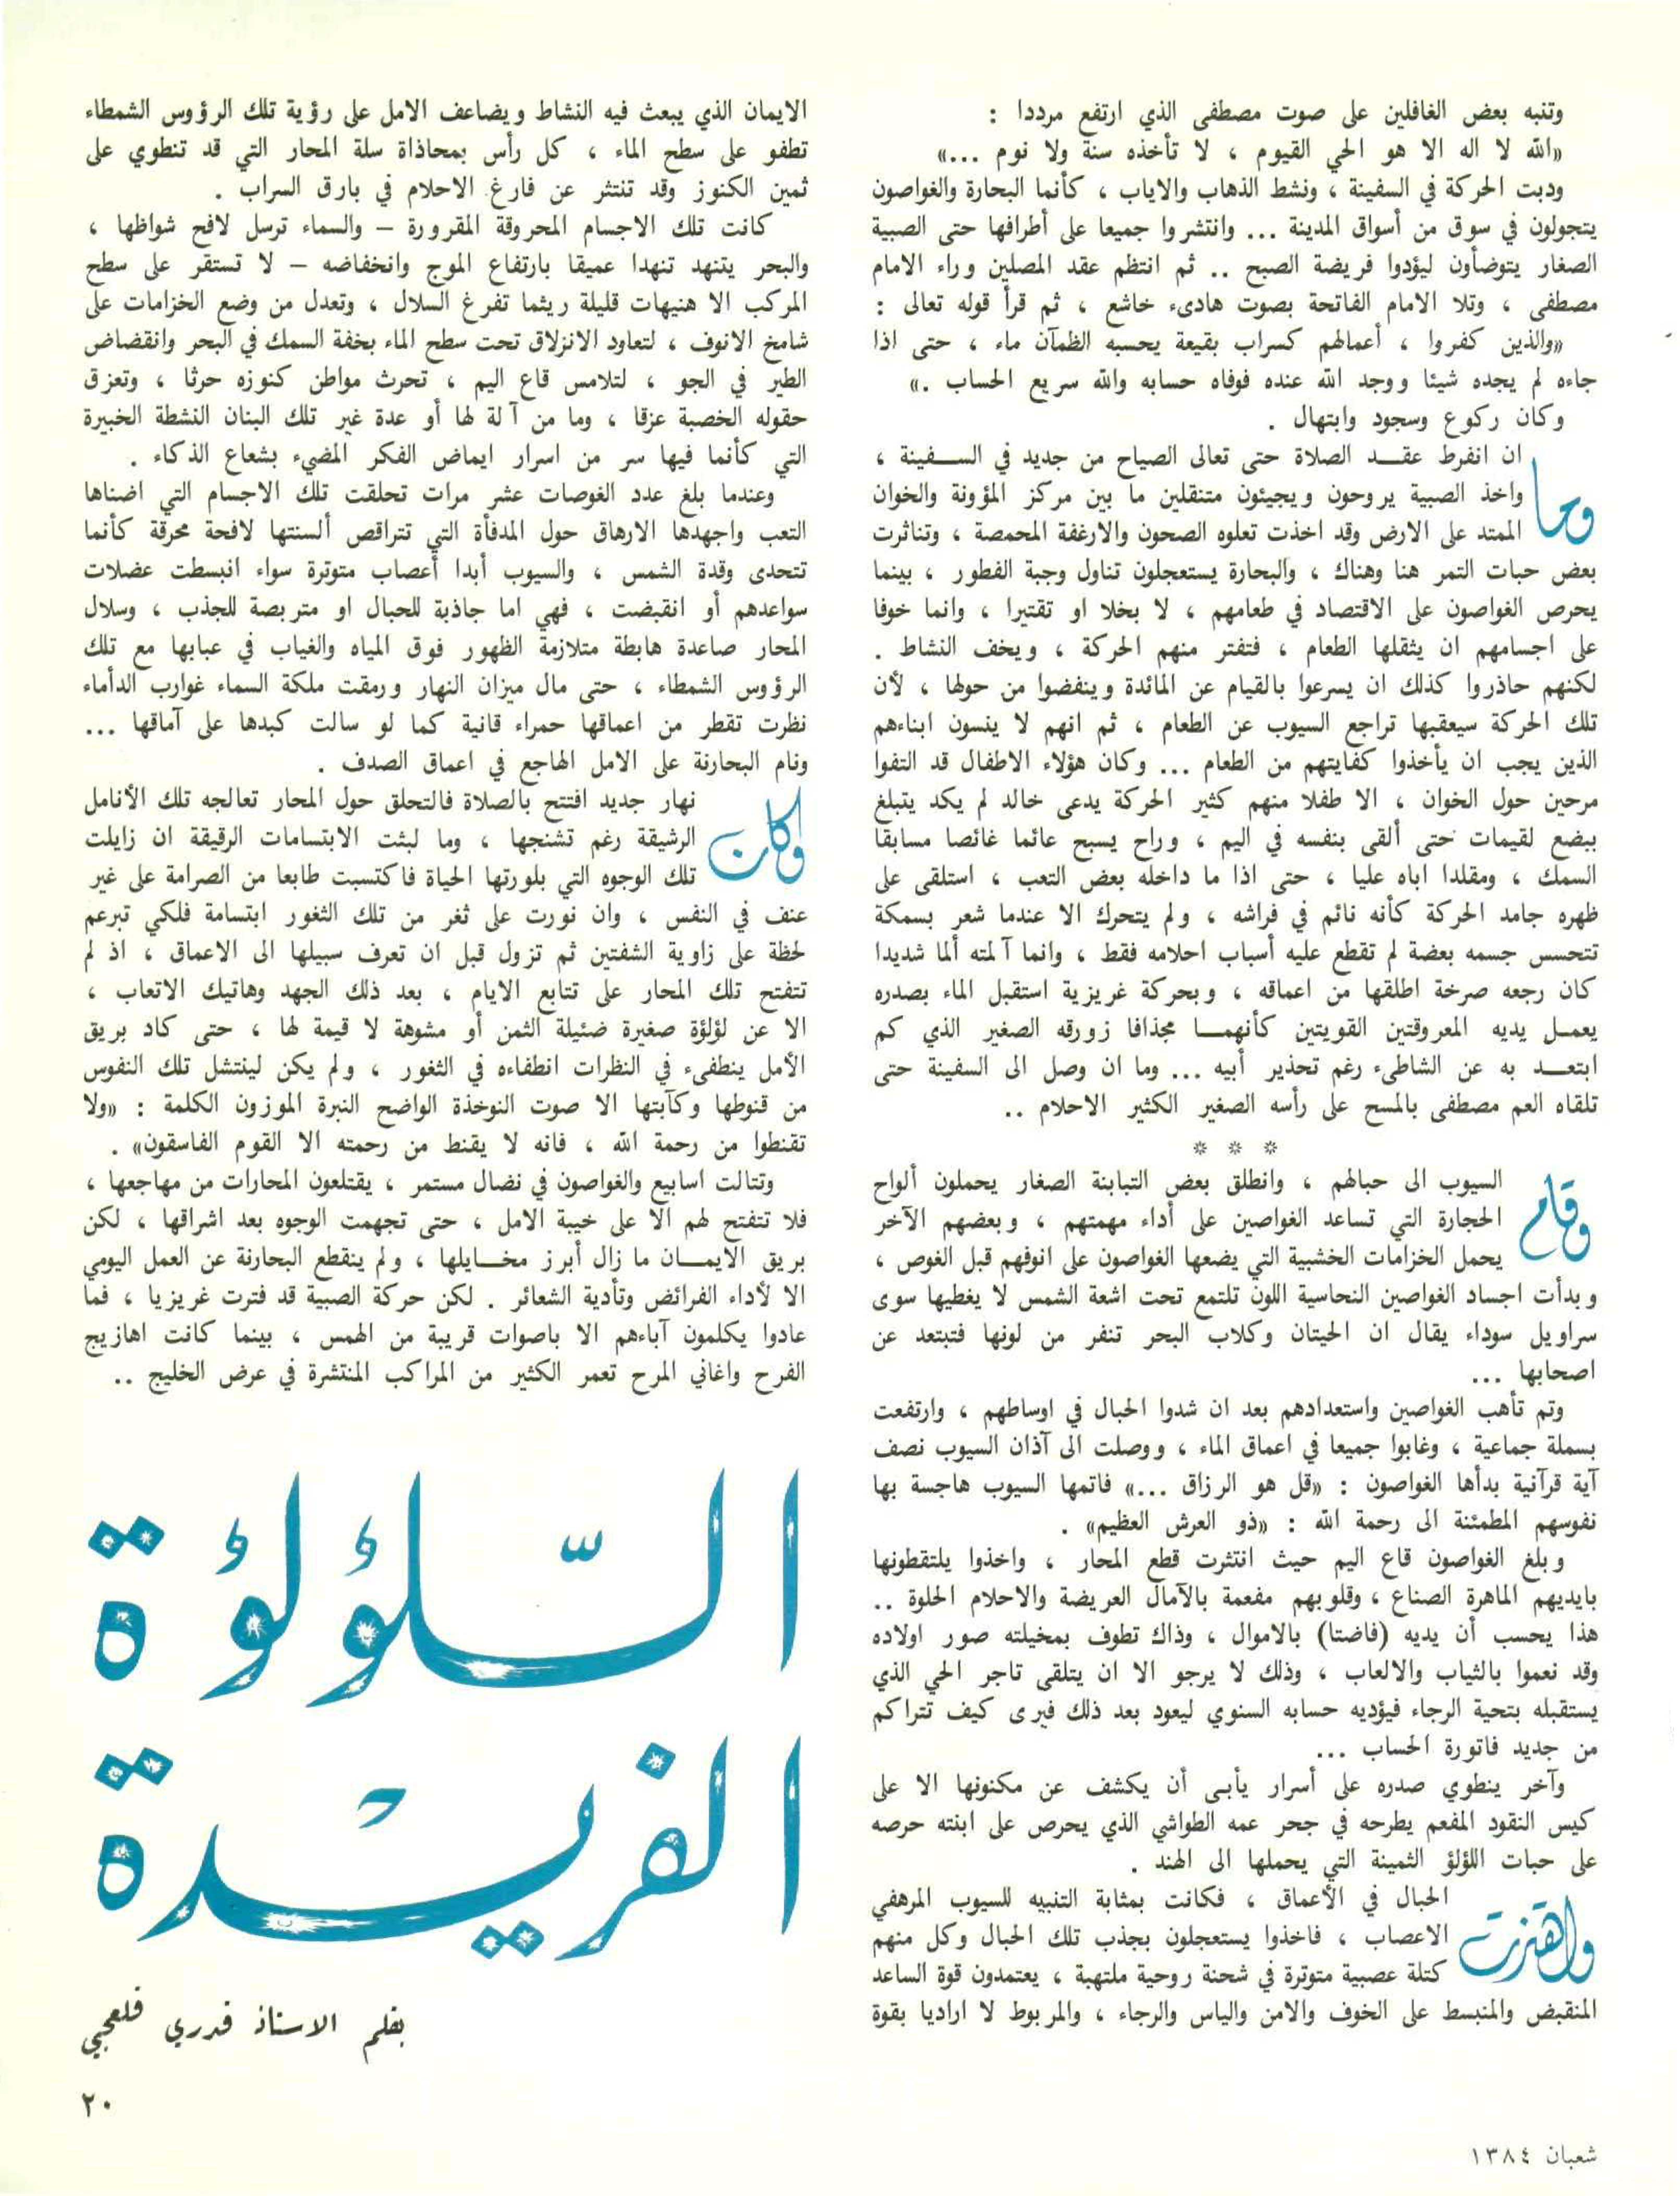 وتنبه بعض الغافلين على صوت مصطفى الذي ارتفع مرددا :
«الله لا اله الا هو الحي القيوم ، لا تأخذه سنة ولا نوم ...»
ودبت الحركة في السفينة ، ونشط الذهاب والاياب ، كأنما البحارة والغواصون
يتجولون في سوق من أسواق المدينة ... وانتشروا جميعا على أطرافها حتى الصبية
الصغار يتوضأون ليؤدوا فريضة الصبح .. ثم انتظم عقد المصلين وراء الامام
مصطفى ، وتلا الامام الفاتحة بصوت هادىء خاشع ، ثم قرأ قوله تعالى :
«والذين كفروا ، أعمالهم كسراب بقيعة يحسبه الظمآن ماء ، حتى اذا
جاءه لم يجده شيئا ووجد الله عنده فوفاه حسابه والله سريع الحساب .»
وكان ركوع وسجود وابتهال .
وما ان انفرط عقـــد الصلاة حتى تعالى الصياح من جديد في الســـفينة ،
واخذ الصبية يروحون ويجيئون متنقلين ما بين مركز المؤونة والخوان
الممتد على الارض وقد اخذت تعلوه الصحون والارغفة المحمصة ، وتناثرت
بعض حبات التمر هنا وهناك ، والبحارة يستعجلون تناول وجبة الفطور ، بينما
يحرص الغواصون على الاقتصاد في طعامهم ، لا بخلا او تقتيرا ، وانما خوفا
على اجسامهم ان يثقلها الطعام ، فتفتر منهم الحركة ، ويخف النشاط .
لكنهم حاذروا كذلك ان يسرعوا بالقيام عن المائدة وينفضوا من حولها ، لأن
تلك الحركة سيعقبها تراجع السيوب عن الطعام ، ثم انهم لا ينسون ابناءهم
الذين يجب ان يأخذوا كفايتهم من الطعام ... وكان هؤلاء الاطفال قد التفوا
مرحين حول الخوان ، الا طفلا منهم كثير الحركة يدعى خالد لم يكد يتبلغ
ببضع لقيمات حتى ألقى بنفسه في اليم ، وراح يسبح عائما غائصا مسابقا
السمك ، ومقلدا اباه عليا ، حتى اذا ما داخله بعض التعب ، استلقى على
ظهره جامد الحركة كأنه نائم في فراشه ، ولم يتحرك الا عندما شعر بسمكة
تتحسس جسمه بعضة لم تقطع عليه أسباب احلامه فقط ، وانما آلمته ألما شديدا
كان رجعه صرخة اطلقها من اعماقه ، وبحركة غريزية استقبل الماء بصدره
يعمـل يديه المعروقتين القويتين كأنهمـــا مجذافا زورقه الصغير الذي كم
ابتعـــد به عن الشاطىء رغم تحذير أبيه ... وما ان وصل الى السفينة حتى
تلقاه العم مصطفى بالمسح على رأسه الصغير الكثير الاحلام ..
* * *
وقام السيوب الى حبالهم ، وانطلق بعض التبابنة الصغار يحملون ألواح
الحجارة التي تساعد الغواصين على أداء مهمتهم ، وبعضهم الآخر
يحمل الخزامات الخشبية التي يضعها الغواصون على انوفهم قبل الغوص ،
وبدأت اجساد الغواصين النحاسية اللون تلتمع تحت اشعة الشمس لا يغطيها سوى
سراويل سوداء يقال ان الحيتان وكلاب البحر تنفر من لونها فتبتعد عن
اصحابها ...
وتم تأهب الغواصين واستعدادهم بعد ان شدوا الحبال في اوساطهم ، وارتفعت
بسملة جماعية ، وغابوا جميعا في اعماق الماء ، ووصلت الى آذان السيوب نصف
آية قرآنية بدأها الغواصون : «قل هو الرزاق ...» فاتمها السيوب هاجسة بها
نفوسهم المطمئنة الى رحمة الله : «ذو العرش العظيم» .
وبلغ الغواصون قاع اليم حيث انتثرت قطع المحار ، واخذوا يلتقطونها
بايديهم الماهرة الصناع ، وقلوبهم مفعمة بالآمال العريضة والاحلام الحلوة ..
هذا يحسب أن يديه (فاضتا) بالاموال ، وذاك تطوف بمخيلته صور اولاده
وقد نعموا بالثياب والالعاب ، وذلك لا يرجو الا ان يتلقى تاجر الحي الذي
يستقبله بتحية الرجاء فيؤديه حسابه السنوي ليعود بعد ذلك فيرى كيف تتراكم
من جديد فاتورة الحساب ...
وآخر ينطوي صدره على أسرار يأبى أن يكشف عن مكنونها الا على
كيس النقود المفعم يطرحه في جحر عمه الطواشي الذي يحرص على ابنته حرصه
على حبات اللؤلؤ الثمينة التي يحملها الى الهند .
واهتزت الحبال في الأعماق ، فكانت بمثابة التنبيه للسيوب المرهفي
الاعصاب ، فاخذوا يستعجلون بجذب تلك الحبال وكل منهم
كتلة عصبية متوترة في شحنة روحية ملتهبة ، يعتمدون قوة الساعد
المنقبض والمنبسط على الخوف والامن والياس والرجاء ، والمربوط لا اراديا بقوة
الايمان الذي يبعث فيه النشاط ويضاعف الامل على رؤية تلك الرؤوس الشمطاء
تطفو على سطح الماء ، كل رأس بمحاذاة سلة المحار التي قد تنطوي على
ثمين الكنوز وقد تنتثر عن فارغ الاحلام في بارق السراب .
كانت تلك الاجسام المحروقة المقرورة – والسماء ترسل لافح شواظها ،
والبحر يتنهد تنهدا عميقا بارتفاع الموج وانخفاضه – لا تستقر على سطح
المركب الا هنيهات قليلة ريثما تفرغ السلال ، وتعدل من وضع الخزامات على
شامخ الانوف ، لتعاود الانزلاق تحت سطح الماء بخفة السمك في البحر وانقضاض
الطير في الجو ، لتلامس قاع اليم ، تحرث مواطن كنوزه حرثا ، وتعزق
حقوله الخصبة عزقا ، وما من آلة لها أو عدة غير تلك البنان النشطة الخبيرة
التي كأنما فيها سر من اسرار ايماض الفكر المضيء بشعاع الذكاء .
وعندما بلغ عدد الغوصات عشر مرات تحلقت تلك الاجسام التي اضناها
التعب واجهدها الارهاق حول المدفأة التي تتراقص ألسنتها لافحة محرقة كأنما
تتحدى وقدة الشمس ، والسيوب أبدا أعصاب متوترة سواء انبسطت عضلات
سواعدهم أو انقبضت ، فهي اما جاذبة للحبال او متربصة للجذب ، وسلال
المحار صاعدة هابطة متلازمة الظهور فوق المياه والغياب في عبابها مع تلك
الرؤوس الشمطاء ، حتى مال ميزان النهار ورمقت ملكة السماء غوارب الدأماء
نظرت تقطر من اعماقها حمراء قانية كما لو سالت كبدها على آماقها ...
ونام البحارنة على الامل الهاجع في اعماق الصدف .
وكان نهار جديد افتتح بالصلاة فالتحلق حول المحار تعالجه تلك الأنامل
الرشيقة رغم تشنجها ، وما لبثت الابتسامات الرقيقة ان زايلت
تلك الوجوه التي بلورتها الحياة فاكتسبت طابعا من الصرامة على غير
عنف في النفس ، وان نورت على ثغر من تلك الثغور ابتسامة فلكي تبرعم
لحظة على زاوية الشفتين ثم تزول قبل ان تعرف سبيلها الى الاعماق ، اذ لم
تتفتح تلك المحار على تتابع الايام ، بعد ذلك الجهد وهاتيك الاتعاب ،
الا عن لؤلؤة صغيرة ضئيلة الثمن أو مشوهة لا قيمة لها ، حتى كاد بريق
الأمل ينطفىء في النظرات انطفاءه في الثغور ، ولم يكن لينتشل تلك النفوس
من قنوطها وكآبتها الا صوت النوخذة الواضح النبرة الموزون الكلمة : «ولا
تقنطوا من رحمة الله ، فانه لا يقنط من رحمته الا القوم الفاسقون» .
وتتالت اسابيع والغواصون في نضال مستمر ، يقتلعون المحارات من مهاجعها ،
فلا تتفتح لهم الا على خيبة الامل ، حتى تجهمت الوجوه بعد اشراقها ، لكن
بريق الايمـــان ما زال أبرز مخـــايلها ، ولم ينقطع البحارنة عن العمل اليومي
الا لأداء الفرائض وتأدية الشعائر . لكن حركة الصبية قد فترت غريزيا ، فما
عادوا يكلمون آباءهم الا باصوات قريبة من الهمس ، بينما كانت اهازيج
الفرح واغاني المرح تعمر الكثير من المراكب المنتشرة في عرض الخليج ..
اللّؤلؤة
الفريْدة
بقلم الاستاذ قدري قلعجي
٢٠
شعبان ١٣٨٤